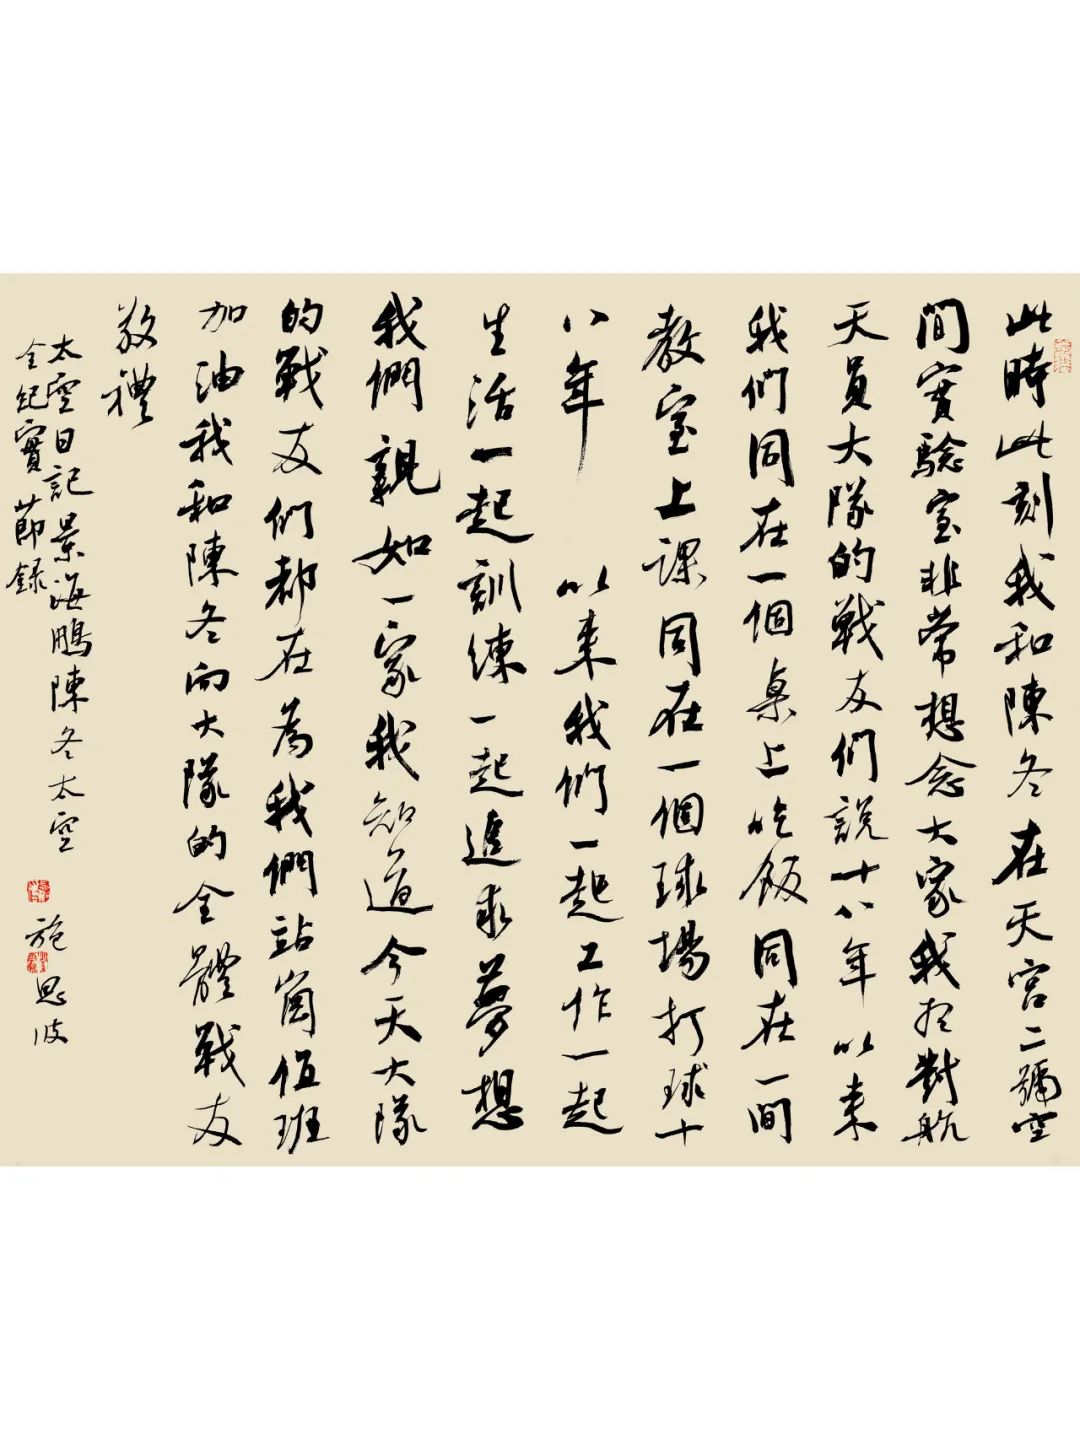 此時此刻我和陳冬在天宮二號空
間實驗室非常想念大家我想對航
天員大隊的戰友们說十八年以来
我們同在一個桌上吃飯同在一間
教室上課同在一個球場打球十
八年以来我们一起工作一起
生活一起訓練一起追求夢想
我們親如一家我知道今天大隊
的戰友们都在為我們站崗值班
加油我和陳冬向大隊的全體戰友
敬禮
太空日記景海鵬陳冬太空
全紀實節録
施恩波